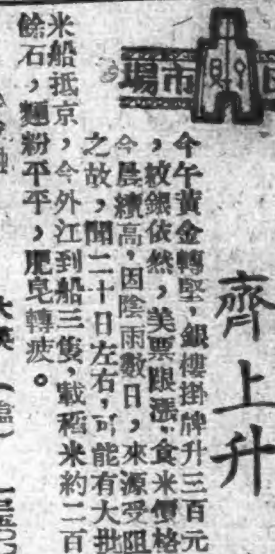 市場
齊上升
今午黃金轉堅,銀樓掛牌升三百元
,紋銀依然,美票跟漲,食米價格
今晨續高,因陰雨數日,來源受阻
之故,聞二十日左右,可能有大批
米船抵京,今外江到船三隻,載稻米約二百
餘石,麵粉平平,肥皂轉疲。